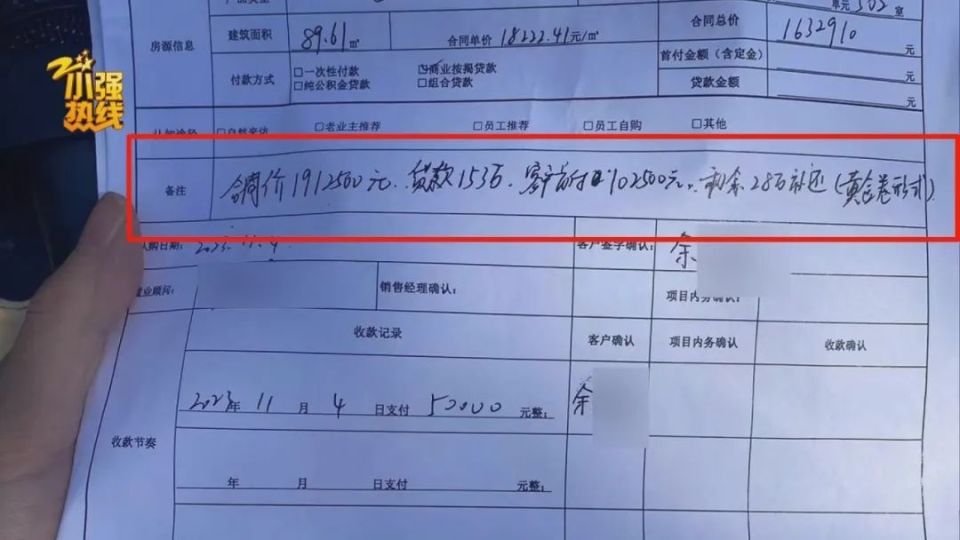 小强
热线
单元502室
房源信息 建筑面积 89.61㎡ 合同单价 18222.41元/㎡ 合同总价 1632910元
首付金额（含定金） 元
付款方式 □一次性付款 ☑商业按揭贷款 贷款金额 元
□纯公积金贷款 □组合贷款
认知途径 □自然来访 □老业主推荐 □员工推荐 □员工自购 □其他
备注 合同价1912500元、贷款153万、客户首付102500元、剩余28万补还（黄金卷形式）
认购日期：2023.11.4 客户签字确认： 余
置业顾问： 销售经理确认： 项目内务确认：
收款记录 客户确认 项目内务确认 收款确认
收款节奏 2023年11月4日支付50000元整； 余
年 月 日支付 元整；